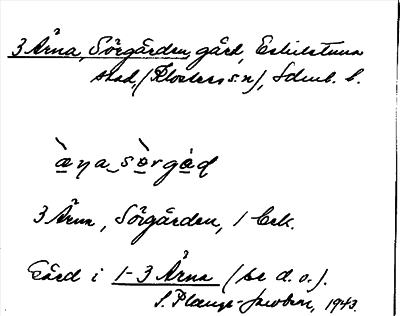 3 Ärna, Sörgården, gård, Eskilstuna
stad, (Klosters sn), Sdml. l.
ὰŋa sörgàd
3 Ärna, Sörgården, 1 Eek.
Gård i 1-3 Ärna (se d. o.).
S. Plange-Jacobson, 1943.